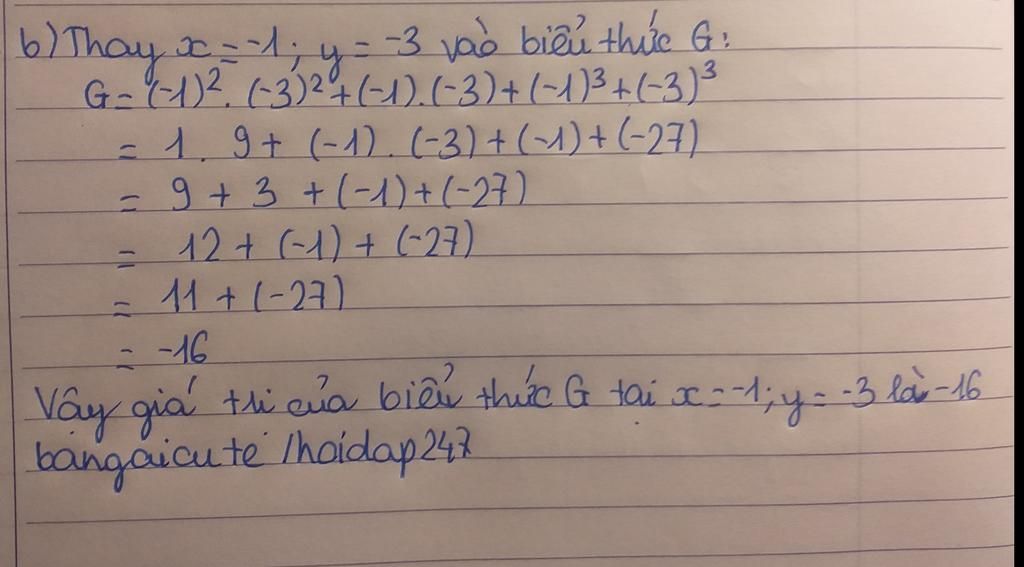 b) Thay x = -1; y = -3 vào biểu thức G:
G = (-1)². (-3)² + (-1). (-3) + (-1)³ + (-3)³
= 1. 9 + (-1). (-3) + (-1) + (-27)
= 9 + 3 + (-1) + (-27)
= 12 + (-1) + (-27)
= 11 + (-27)
= -16
Vậy giá trị của biểu thức G tại x = -1; y = -3 là -16
bangaicute /hoidap247